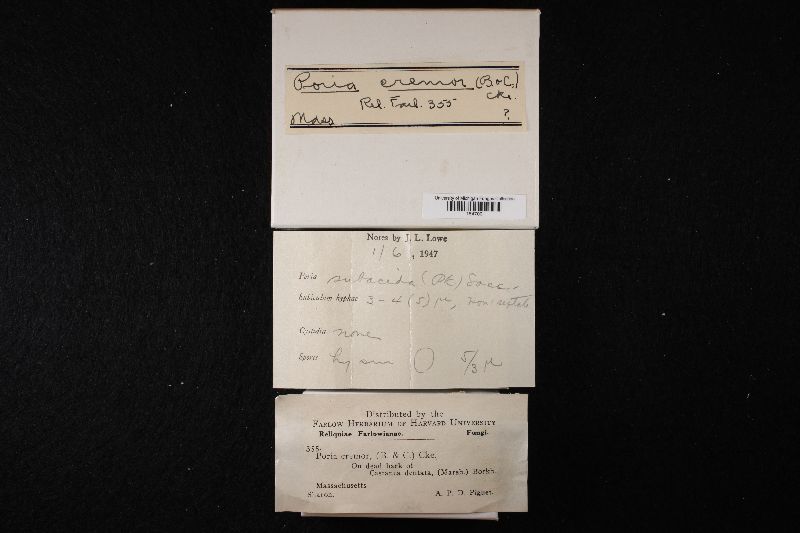 Poria cremor (B & C.)
Cke.
Rel. Farl. 355
Mass ?
University of Michigan Fungus Collection
Notes by J. L. Lowe
1/6, 1947
Poria subacida (Pk) Sacc.
Subiculum hyphae 3-4(5) µ, non-septate
Cystidia none
Spores hy sm 5/3 µ
Distributed by the
FARLOW HERBARIUM OF HARVARD UNIVERSITY
Reliquiae Farlowianae. Fungi.
355.
Poria cremor, (B. & C.) Cke.
On dead bark of
Castanea dentata, (Marsh.) Borkh.
Massachusetts
Sharon. A. P. D. Piguet.